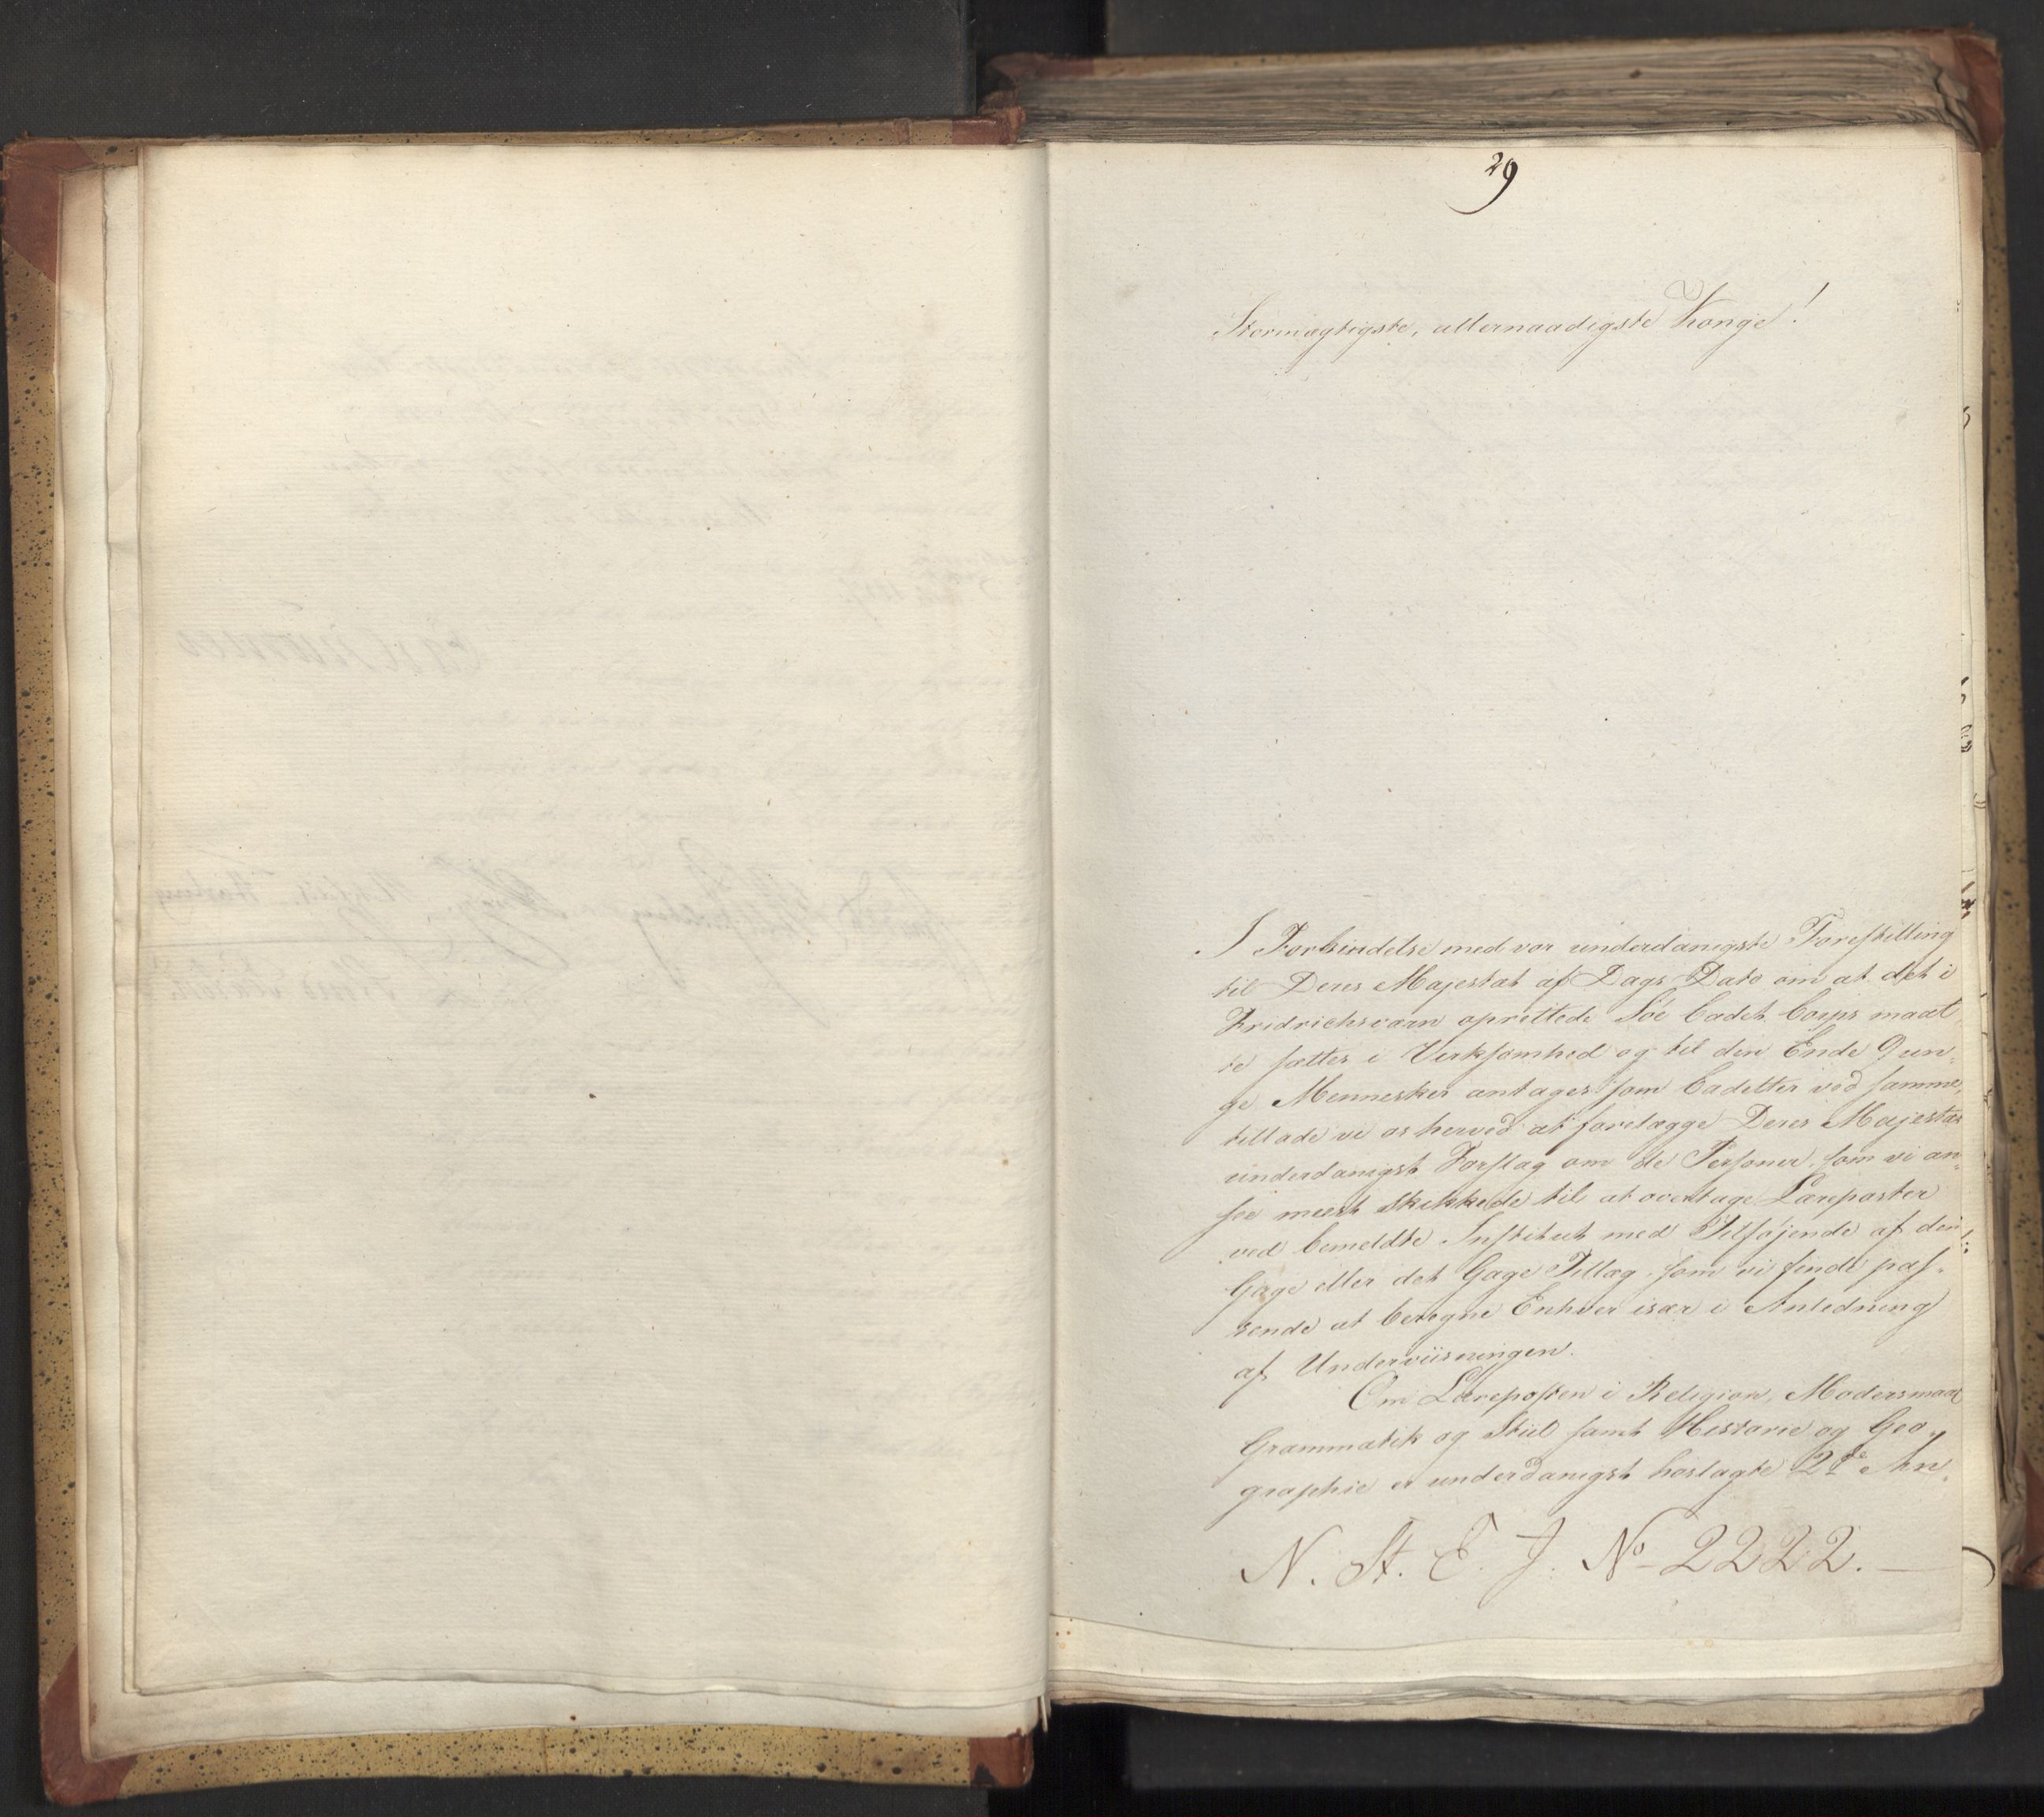 29
Stormægtigste, allernaadigste Konge!
I Forbindelse med vor underdanigste Forestilling
til Deres Majestæt af Dags Dato om at det i
Fridrichsværn oprettede Søe Cadet Corps maat
te sættes i Virksomhed og til den Ende 9 un-
ge Mennesker antages som Cadetter ved samme,
tillade vi os herved at forelægge Deres Majestæt
underdanigst Forslag om de Personer, som vi an-
see meest skikkede til at overtage Læreposter
ved bemeldte Institut med Tilføjende af den
Gage eller det Gage Tillæg, som vi finde pas-
sende at beregne Enhver især i Anledning
af Underviisningen.
Om Læreposten i Religion, Modersmaal
Grammatik og Stiil samt Historie og Geo-
graphie er underdanigst hoslagte 2de An-
N. St. E. J. No 2222.